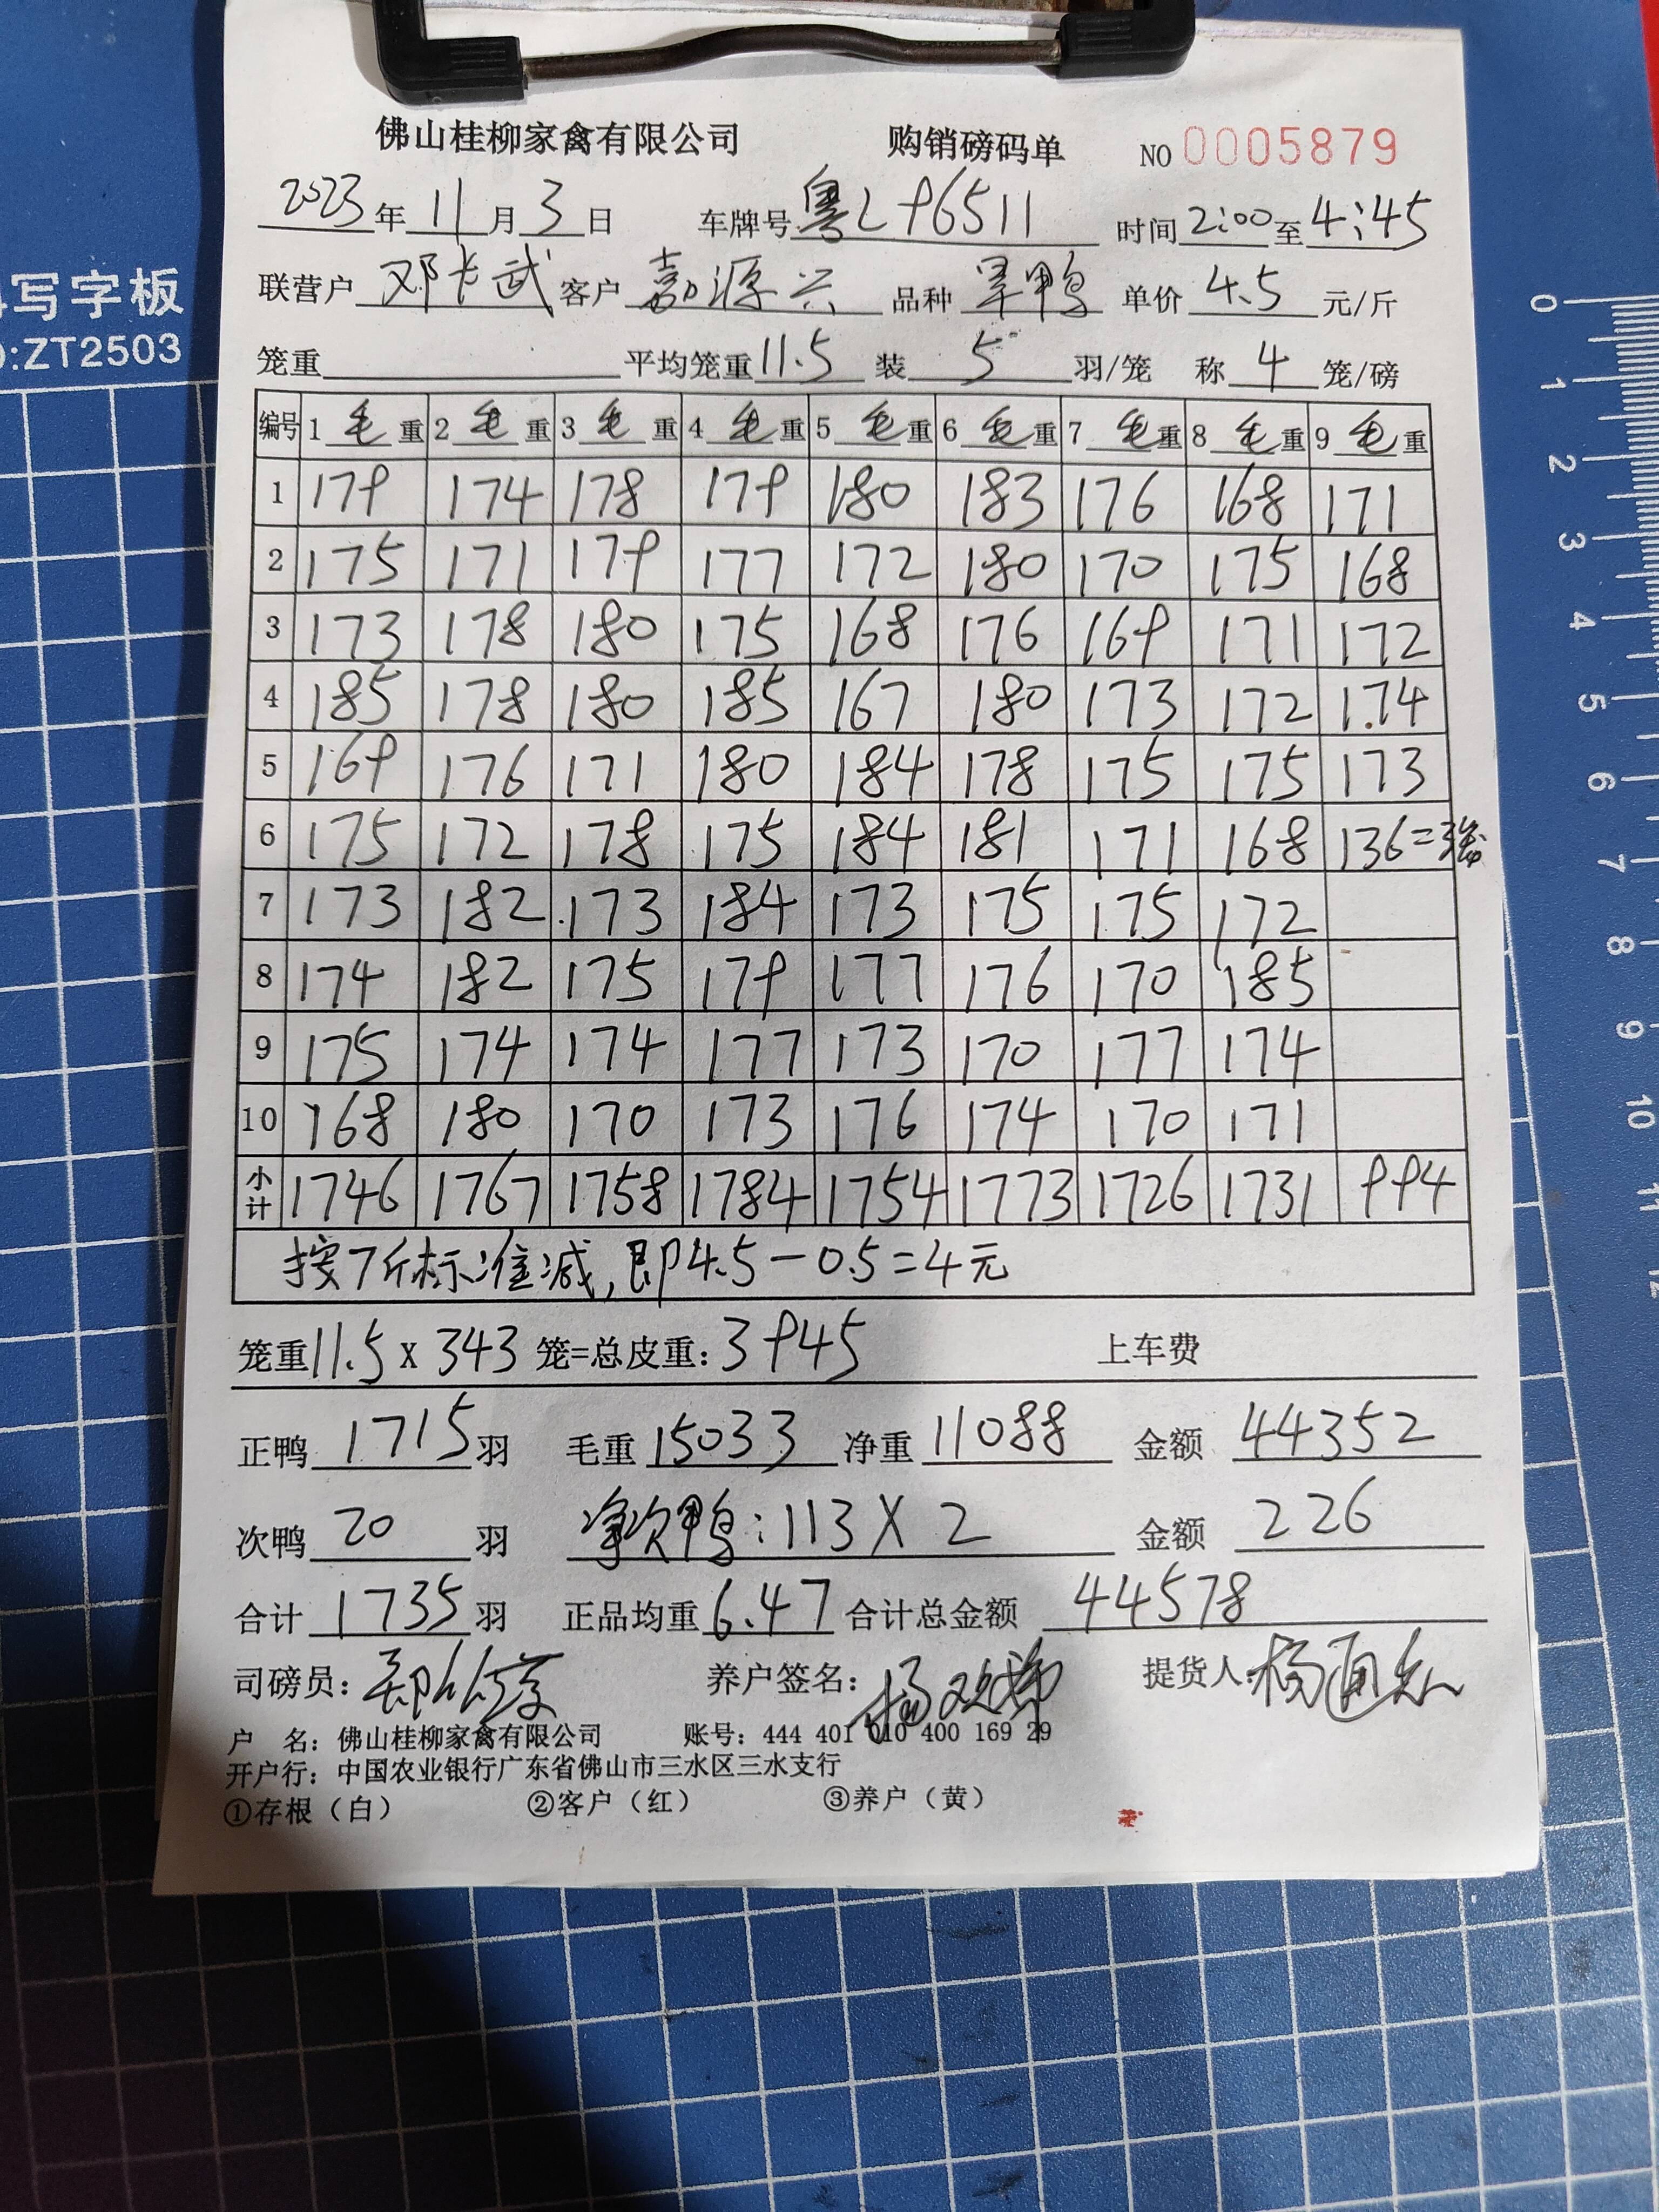 佛山桂柳家禽有限公司 购销磅码单 NO 0005879
2023年11月3日 车牌号粤L96511 时间2:00至4:45
联营户 邓长武 客户 嘉源兴 品种 旱鸭 单价 4.5 元/斤
笼重 平均笼重11.5 装 5 羽/笼 称 4 笼/磅
编号 1毛重 2毛重 3毛重 4毛重 5毛重 6毛重 7毛重 8毛重 9毛重
1 179 174 178 179 180 183 176 168 171
2 175 171 179 177 172 180 170 175 168
3 173 178 180 175 168 176 169 171 172
4 185 178 180 185 167 180 173 172 174
5 169 176 171 180 184 178 175 175 173
6 175 172 178 175 184 181 171 168 136=3笼
7 173 182 173 184 173 175 175 172
8 174 182 175 179 177 176 170 185
9 175 174 174 177 173 170 177 174
10 168 180 170 173 176 174 170 171
小计 1746 1767 1758 1784 1754 1773 1726 1731 994
按7斤标准减,即4.5-0.5=4元
笼重11.5x343笼=总皮重:3945 上车费
正鸭 1715 羽 毛重 15033 净重 11088 金额 44352
次鸭 20 羽 净次鸭:113X2 金额 226
合计 1735 羽 正品均重 6.47 合计总金额 44578
司磅员: 养户签名: 提货人:
户 名:佛山桂柳家禽有限公司 账号:444 401 010 400 169 29
开户行:中国农业银行广东省佛山市三水区三水支行
①存根(白) ②客户(红) ③养户(黄)
写字板
:ZT2503
0
1
2
3
4
5
6
7
8
9
10
11
12